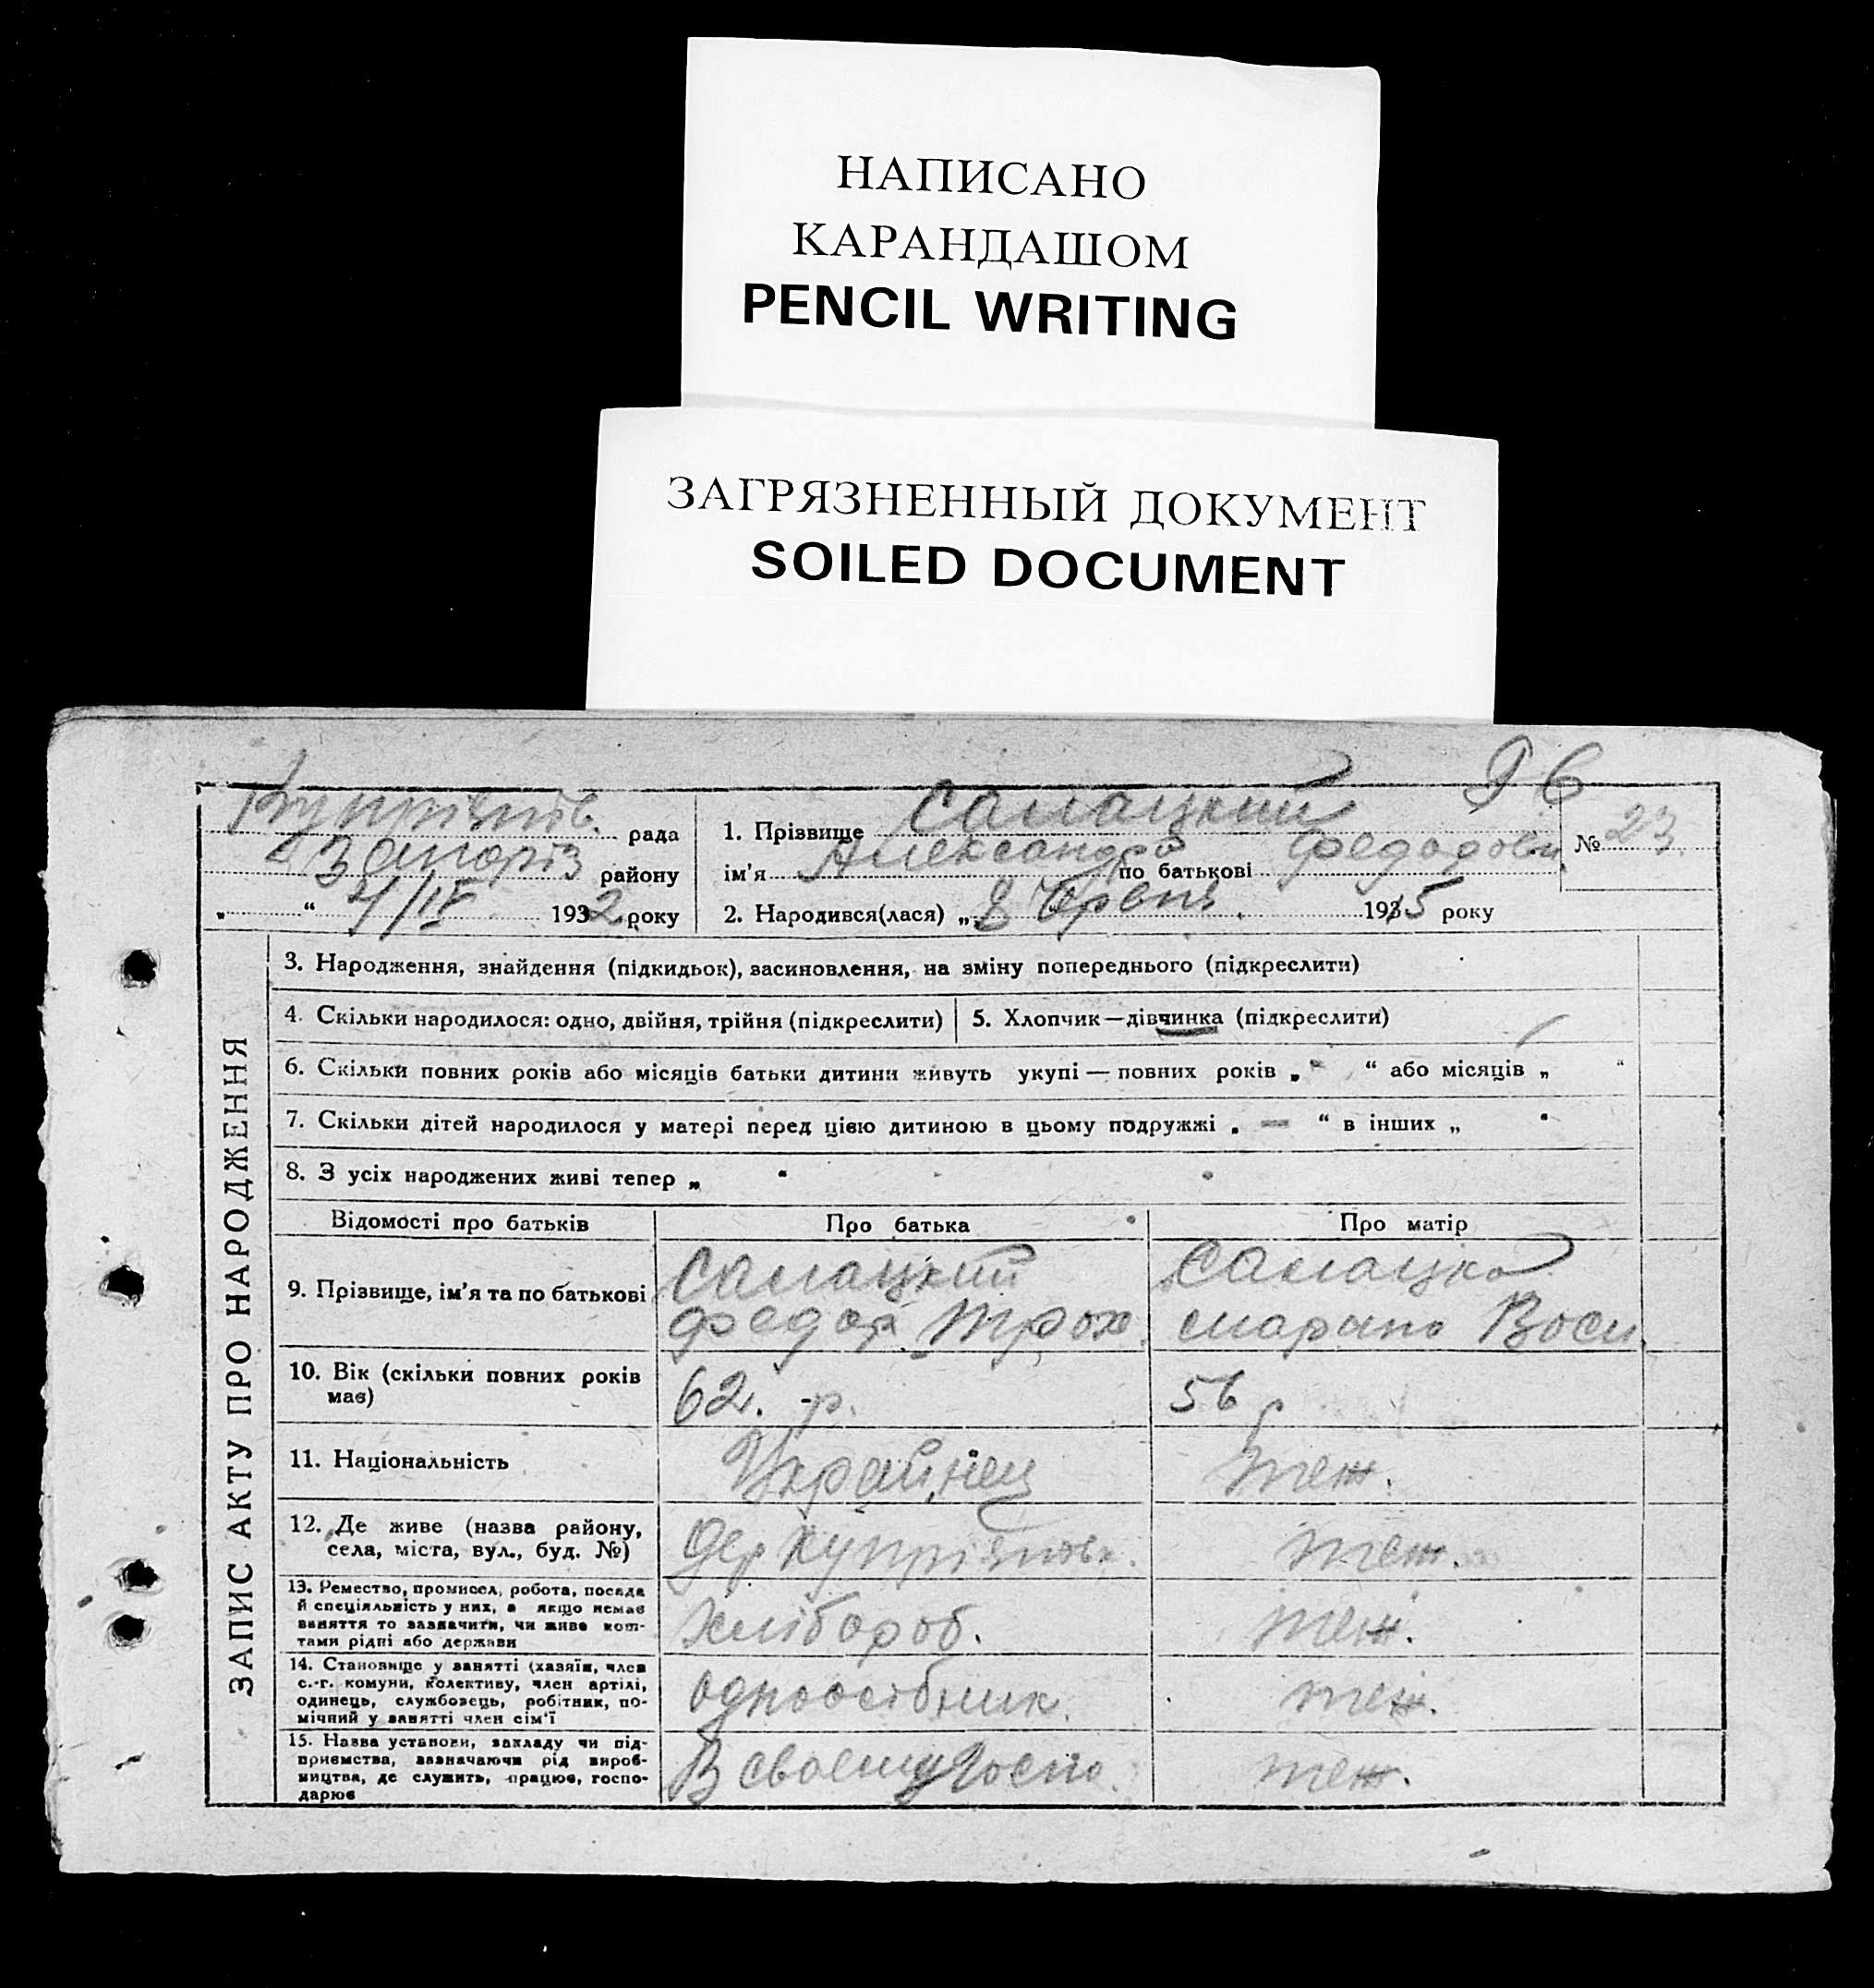 НАПИСАНО
КАРАНДАШОМ
PENCIL WRITING
ЗАГРЯЗНЕННЫЙ ДОКУМЕНТ
SOILED DOCUMENT
рада
району
4/IV 1932 року
1. Прізвище
ім'я Александра по батькові Федоровн
2. Народився(лася) „8 Червня 1915 року
№ 23
ЗАПИС АКТУ ПРО НАРОДЖЕННЯ
3. Народження, знайдення (підкидьок), засиновлення, на зміну попереднього (підкреслити)
4. Скільки народилося: одно, двійня, трійня (підкреслити)
5. Хлопчик—дівчинка (підкреслити)
6. Скільки повних років або місяців батьки дитини живуть укупі — повних років „ - “ або місяців „ “
7. Скільки дітей народилося у матері перед цією дитиною в цьому подружжі „ — “ в інших „ “
8. З усіх народжених живі тепер „ “
Відомості про батьків
Про батька
Про матір
9. Прізвище, ім'я та по батькові
Федор Трох.
10. Вік (скільки повних років
має)
62. р.
56 р
11. Національність
Украйнец
теж.
12. Де живе (назва району,
села, міста, вул., буд. №)
теж.
13. Ремество, промисел, робота, посада
й спеціяльність у них, а якщо немає
заняття то зазначити, чи живе кош-
тами рідні або держави
хлібороб.
теж.
14. Становище у занятті (хазяїн, член
с.-г. комуни, колективу, член артілі,
одинець, службовець, робітник, по-
мічний у занятті член сім'ї
одноосібник.
теж.
15. Назва установи, закладу чи під-
приємства, зазначаючи рід вироб-
ництва, де служить, працює, госпо-
дарює
В своему Госпо.
теж.